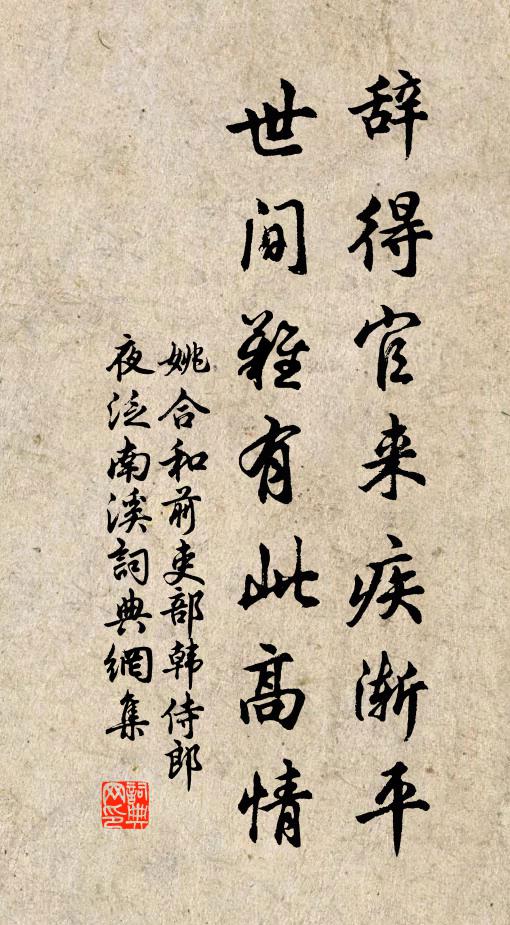 辞得官来疾渐平
世间難有此高情
姚合和前吏部韩侍郎
夜泛南溪詞典網集
詞典网印